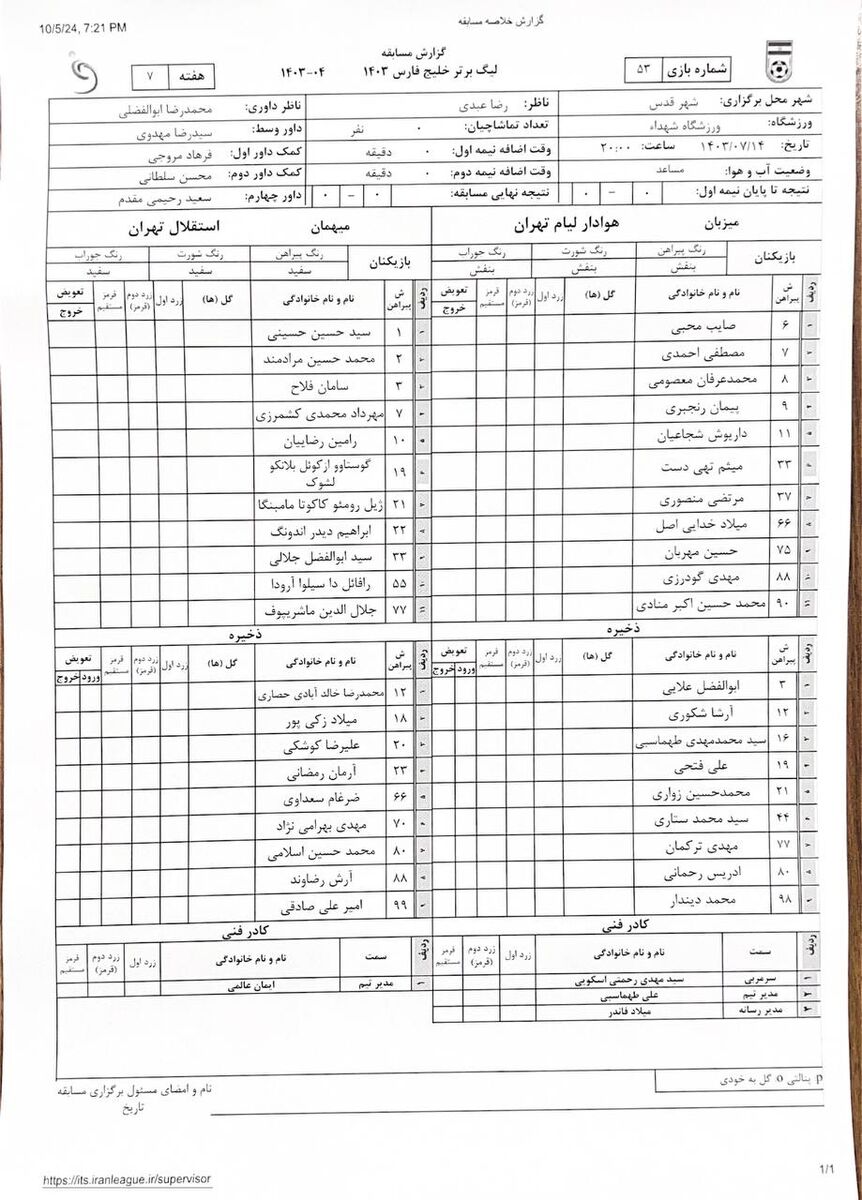 10/5/24, 7:21 PM
گزارش خلاصه مسابقه
گزارش مسابقه
شماره بازی ۵۳
لیگ برتر خلیج فارس ۱۴۰۳ ۱۴۰۳-۰۴
هفته ۷
شهر محل برگزاری: شهر قدس
ناظر: رضا عبدی
ناظر داوری: محمدرضا ابوالفضلی
ورزشگاه: ورزشگاه شهداء
تعداد تماشاچیان: ۰ نفر
داور وسط: سیدرضا مهدوی
تاریخ: ۱۴۰۳/۰۷/۱۴ ساعت: ۲۰:۰۰
وقت اضافه نیمه اول: ۰ دقیقه
کمک داور اول: فرهاد مروجی
وضعیت آب و هوا: مساعد
وقت اضافه نیمه دوم: ۰ دقیقه
کمک داور دوم: محسن سلطانی
نتیجه تا پایان نیمه اول: ۰ – ۰
نتیجه نهایی مسابقه: ۰ – ۰
داور چهارم: سعید رحیمی مقدم
میزبان هوادار لیام تهران
بازیکنان رنگ پیراهن رنگ شورت رنگ جوراب
بنفش بنفش بنفش
ردیف ش پیراهن نام و نام خانوادگی گل (ها) زرد اول زرد دوم (قرمز) قرمز مستقیم تعویض
خروج
۱ ۶ صایب محبی
۲ ۷ مصطفی احمدی
۳ ۸ محمدعرفان معصومی
۴ ۹ پیمان رنجبری
۵ ۱۱ داریوش شجاعیان
۶ ۳۳ میثم تهی دست
۷ ۳۷ مرتضی منصوری
۸ ۶۶ میلاد خدایی اصل
۹ ۷۵ حسین مهربان
۱۰ ۸۸ مهدی گودرزی
۱۱ ۹۰ محمد حسین اکبر منادی
ذخیره
ردیف ش پیراهن نام و نام خانوادگی گل (ها) زرد اول زرد دوم (قرمز) قرمز مستقیم تعویض
ورود خروج
۱ ۳ ابوالفضل علایی
۲ ۱۲ آرشا شکوری
۳ ۱۶ سید محمدمهدی طهماسبی
۴ ۱۹ علی فتحی
۵ ۲۱ محمدحسین زواری
۶ ۴۴ سید محمد ستاری
۷ ۷۷ مهدی ترکمان
۸ ۸۰ ادریس رحمانی
۹ ۹۸ محمد دیندار
کادر فنی
ردیف سمت نام و نام خانوادگی زرد اول زرد دوم (قرمز) قرمز مستقیم
۱ سرمربی سید مهدی رحمتی اسکویی
۲ مدیر تیم علی طهماسبی
۳ مدیر رسانه میلاد قاندر
میهمان استقلال تهران
بازیکنان رنگ پیراهن رنگ شورت رنگ جوراب
سفید سفید سفید
ردیف ش پیراهن نام و نام خانوادگی گل (ها) زرد اول زرد دوم (قرمز) قرمز مستقیم تعویض
خروج
۱ ۱ سید حسین حسینی
۲ ۲ محمد حسین مرادمند
۳ ۳ سامان فلاح
۴ ۷ مهرداد محمدی کشمرزی
۵ ۱۰ رامین رضاییان
۶ ۱۹ گوستاوو ازکوئل بلانکو
لشوک
۷ ۲۱ ژیل رومئو کاکوتا مامبنگا
۸ ۲۲ ابراهیم دیدر اندونگ
۹ ۳۳ سید ابوالفضل جلالی
۱۰ ۵۵ رافائل دا سیلوا آرودا
۱۱ ۷۷ جلال الدین ماشریپوف
ذخیره
ردیف ش پیراهن نام و نام خانوادگی گل (ها) زرد اول زرد دوم (قرمز) قرمز مستقیم تعویض
ورود خروج
۱ ۱۲ محمدرضا خالد آبادی حصاری
۲ ۱۸ میلاد زکی پور
۳ ۲۰ علیرضا کوشکی
۴ ۲۳ آرمان رمضانی
۵ ۶۶ ضرغام سعداوی
۶ ۷۰ مهدی بهرامی نژاد
۷ ۸۰ محمد حسین اسلامی
۸ ۸۸ آرش رضاوند
۹ ۹۹ امیر علی صادقی
کادر فنی
ردیف سمت نام و نام خانوادگی زرد اول زرد دوم (قرمز) قرمز مستقیم
۱ مدیر تیم ایمان عالمی
p پنالتی o گل به خودی
نام و امضای مسئول برگزاری مسابقه
تاریخ
https://its.iranleague.ir/supervisor
1/1